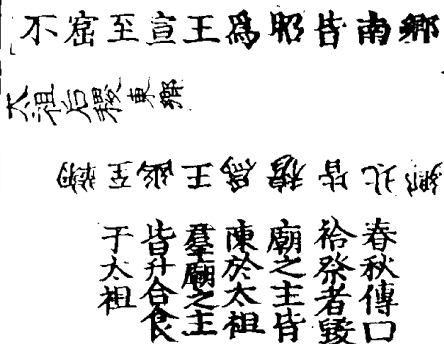 不窋至宣王爲昭皆南鄉
太祖后稷東鄉
鞠至幽王爲穆皆北鄉
春秋傳曰
祫祭者毀
廟之主皆
陳於太祖
羣廟之主
皆升合食
于太祖